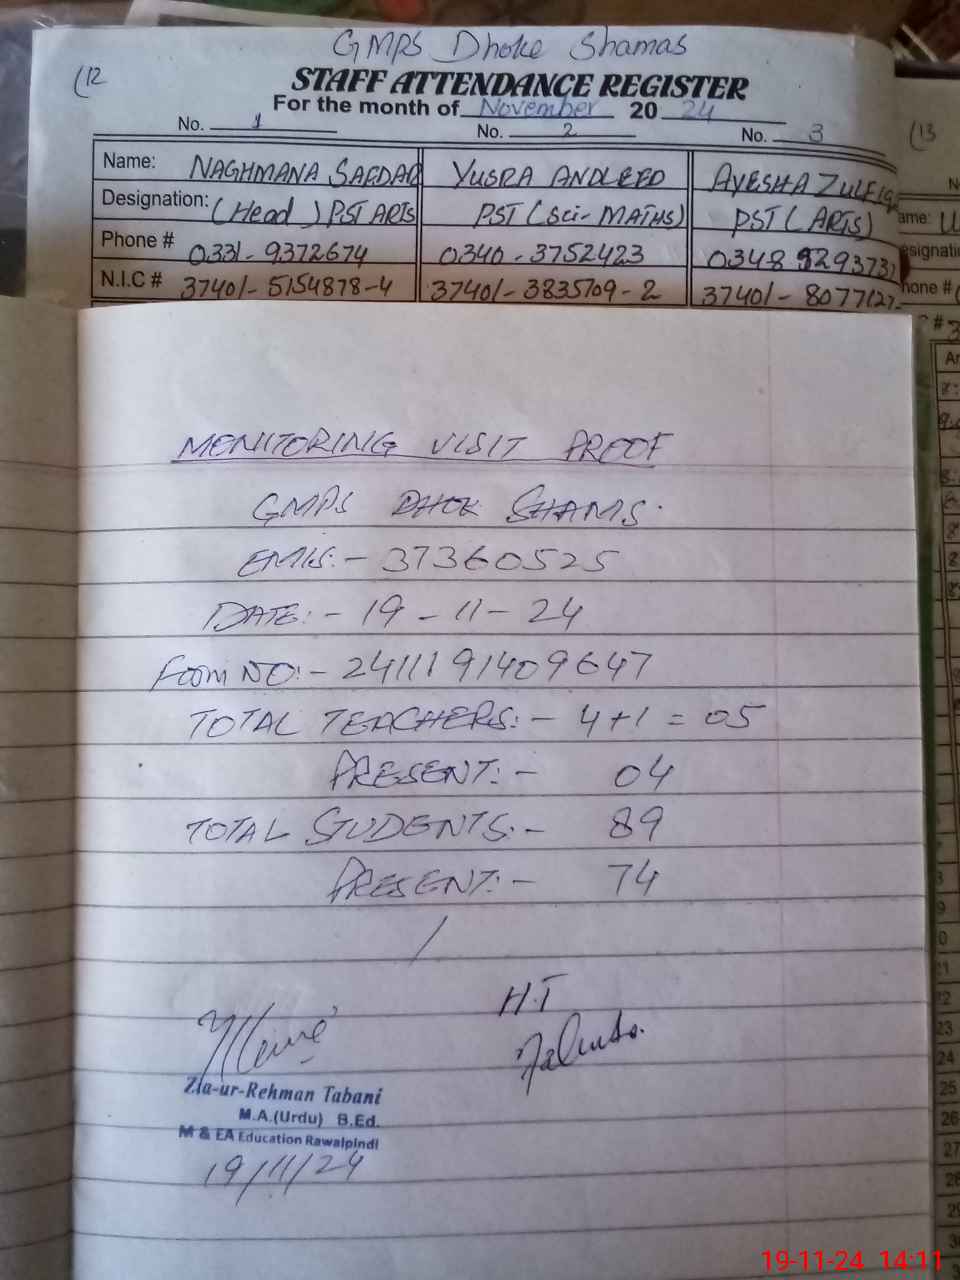 GMPS Dhoke Shamas
(12
STAFF ATTENDANCE REGISTER
For the month of November 20 24
No. 1 No. 2 No. 3
(13
Name: NAGHMANA SAFDAR YUSRA ANDLEEB AYESHA ZULFIQ
Designation: (Head) PST ARTS PST (Sci-MATHS) PST (ARTS)
Phone # 0331-9372674 0340-3752423 0348 9293737
N.I.C # 37401-5154878-4 37401-3835709-2 37401-8077127-
MENITORING VISIT PROOF
GMPS DHOK SHAMS.
EMIS:- 37360525
DATE:- 19-11-24
Foom NO:- 2411191409647
TOTAL TEACHERS:- 4+1=05
PRESENT:- 04
TOTAL STUDENTS:- 89
PRESENT:- 74
/
H.T
Zia-ur-Rehman Tabani
M.A.(Urdu) B.Ed.
M & EA Education Rawalpindi
19/11/24
19-11-24 14:11